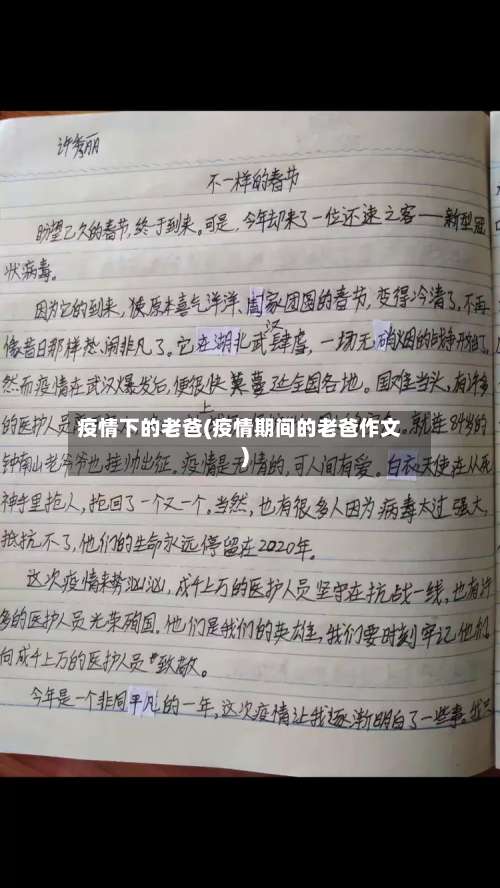 许秀丽
不一样的春节
盼望已久的春节,终于到来。可是,今年却来了一位还速之客——新型冠
状病毒。
因为它的到来,使原本喜气洋洋、阖家团圆的春节,变得冷清了,不再
像昔日那样热闹非凡了。它在湖北武汉肆虐,一场无硝烟的战争开始了。
然而疫情在武汉爆发后,便很快蔓延全国各地。国难当头,有许多
的医护人员 上 就连84岁的
疫情下的老爸(疫情期间的老爸作文
)
钟南山老爷爷也挂帅出征。疫情是无情的,可人间有爱。白衣天使在从死
神手里抢人,抢回了一个又一个。当然,也有很多人因为病毒太过强大,
抵抗不了,他们的生命永远停留在2020年。
这次疫情来势汹汹,成千上万的医护人员坚守在抗战一线,也有许
多的医护人员光荣殉国。他们是我们的英雄,我们要时刻牢记他们,
向成千上万的医护人员致敬。
今年是一个非同平凡的一年,这次疫情让我逐渐明白了一些事。